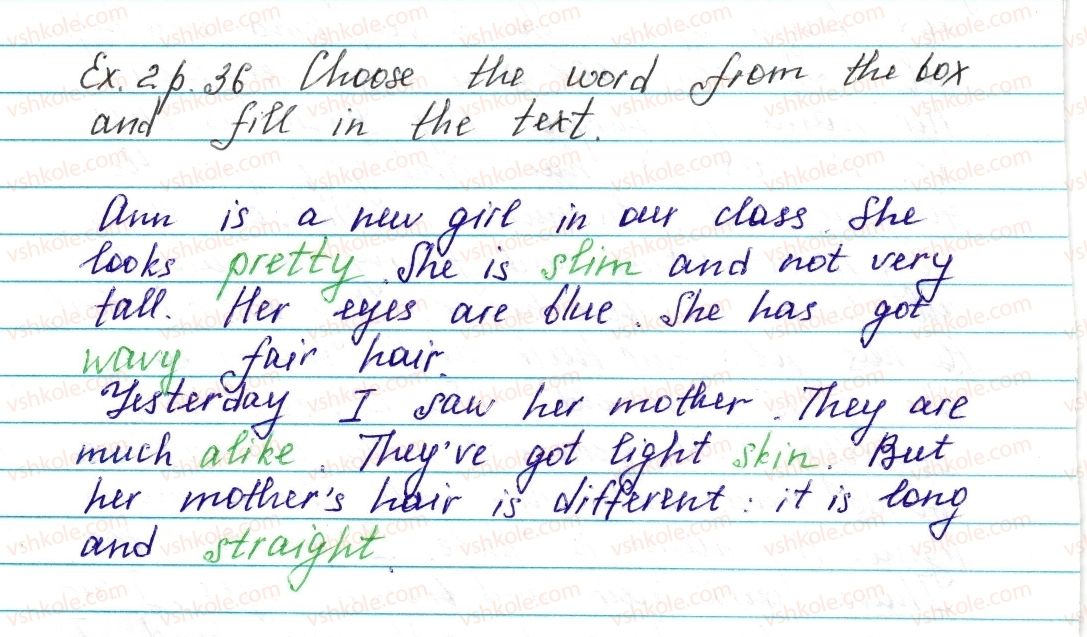 Ex. 2 p. 36 Choose the word from the box
and fill in the text.
Ann is a new girl in our class. She
looks pretty. She is slim and not very
tall. Her eyes are blue. She has got
wavy fair hair.
Yesterday I saw her mother. They are
much alike. They've got light skin. But
her mother's hair is different: it is long
and straight.